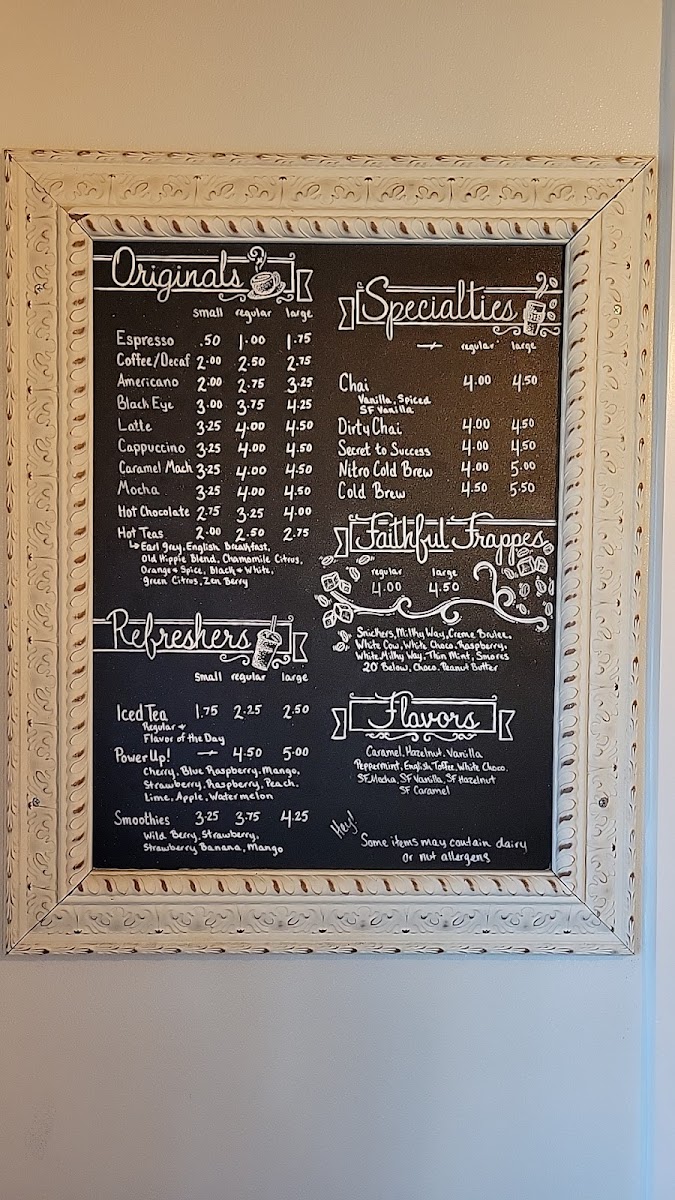 Originals
small regular large
Espresso .50 1.00 1.75
Coffee/Decaf 2.00 2.50 2.75
Americano 2.00 2.75 3.25
Black Eye 3.00 3.75 4.25
Latte 3.25 4.00 4.50
Cappuccino 3.25 4.00 4.50
Caramel Mach 3.25 4.00 4.50
Mocha 3.25 4.00 4.50
Hot Chocolate 2.75 3.25 4.00
Hot Teas 2.00 2.50 2.75
Earl Grey, English Breakfast,
Old Hippie Blend, Chamomile Citrus,
Orange + Spice, Black + White,
Green Citrus, Zen Berry
Refreshers
small regular large
Iced Tea 1.75 2.25 2.50
Regular +
Flavor of the Day
Power Up! 4.50 5.00
Cherry, Blue Raspberry, Mango,
Strawberry, Raspberry, Peach,
Lime, Apple, Watermelon
Smoothies 3.25 3.75 4.25
Wild Berry, Strawberry,
Strawberry Banana, Mango
Specialties
regular large
Chai 4.00 4.50
Vanilla, Spiced
SF Vanilla
Dirty Chai 4.00 4.50
Secret to Success 4.00 4.50
Nitro Cold Brew 4.00 5.00
Cold Brew 4.50 5.50
Faithful Frappes
regular large
4.00 4.50
Snickers, Milky Way, Creme Brulee,
White Cow, White Choco. Raspberry,
White Milky Way, Thin Mint, Smores
20 Below, Choco. Peanut Butter
Flavors
Caramel, Hazelnut, Vanilla
Peppermint, English Toffee, White Choco.
SF Mocha, SF Vanilla, SF Hazelnut
SF Caramel
Hey!
Some items may contain dairy
or nut allergens